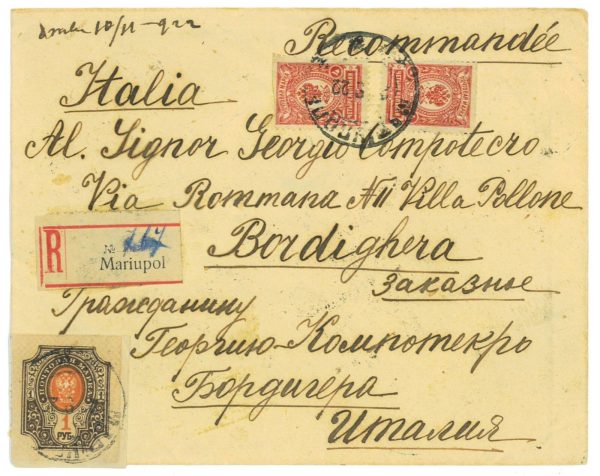 10/11-922
Recommandée
Italia
Al. Signor Georgio Compotecro
Via Rommana N 11 Villa Pollone
R
№ 767
Mariupol
Bordighera
Заказное
Гражданину
Георгию Компотекрь
Бордигера
Италия
ПОЧТОВАЯ МАРКА
1
РУБ